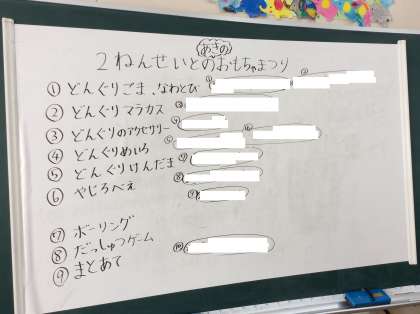 あきの
2ねんせいとのおもちゃまつり
① どんぐりごま、なわとび
② どんぐりマラカス
③ どんぐりのアクセサリー
④ どんぐりめいろ
⑤ どんぐりけんだま
⑥ やじろべえ
⑦ ボーリング
⑧ だっしゅつゲーム
⑨ まとあて